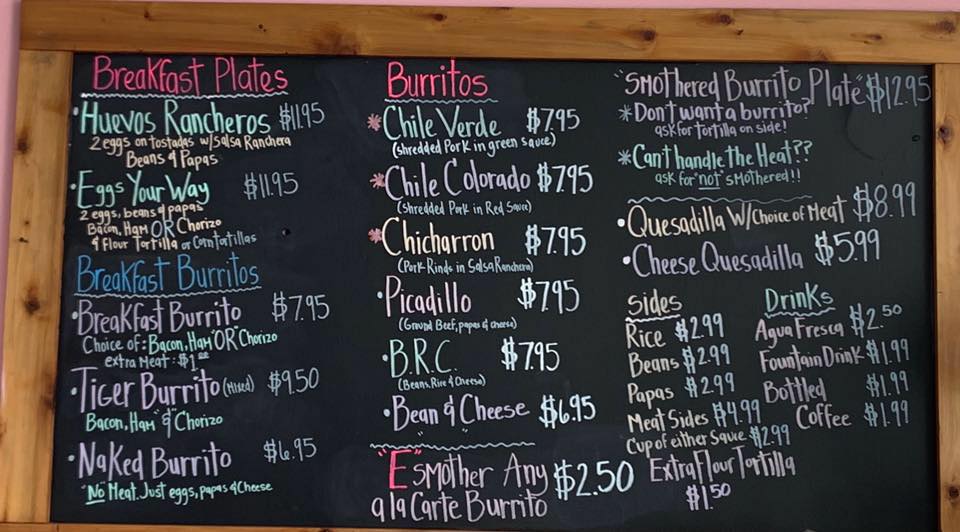 Breakfast Plates
• Huevos Rancheros $11.95
2 eggs on tostadas w/salsa Ranchera
Beans & Papas
• Eggs Your Way $11.95
2 eggs, beans & papas
Bacon, Ham OR Chorizo
& Flour Tortilla or Corn Tortillas
Breakfast Burritos
• Breakfast Burrito $7.95
Choice of: Bacon, Ham OR Chorizo
extra Meat: $1.00
• Tiger Burrito (Mixed) $9.50
Bacon, Ham "&" Chorizo
• Naked Burrito $6.95
"No Meat. Just eggs, papas & Cheese
Burritos
* Chile Verde $7.95
(shredded Pork in green sauce)
* Chile Colorado $7.95
(shredded Pork in Red Sauce)
* Chicharron $7.95
(Pork Rinds in Salsa Ranchera)
• Picadillo $7.95
(Ground Beef, papas & cheese)
• B.R.C. $7.95
(Beans, Rice & Cheese)
• Bean & Cheese $6.95
"E"smother Any
a la Carte Burrito $2.50
"Smothered Burrito Plate" $12.95
* Don't want a burrito?
ask for tortilla on side!
* Can't handle the Heat??
ask for "not" smothered!!
• Quesadilla W/Choice of Meat $8.99
• Cheese Quesadilla $5.99
Sides
Rice $2.99
Beans $2.99
Papas $2.99
Meat Sides $4.99
Cup of either Sauce $2.99
Extra Flour Tortilla
$1.50
Drinks
Agua Fresca $2.50
Fountain Drink $1.99
Bottled $1.99
Coffee $1.99